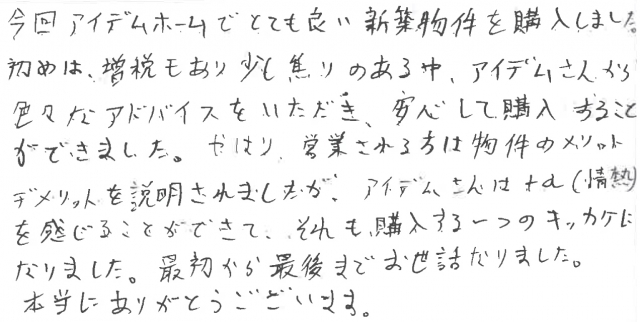 今回アイデムホームでとても良い新築物件を購入しました
初めは、増税もあり少し焦りのある中、アイデムさんから
色々なアドバイスをいただき、安心して購入すること
ができました。やはり、営業される方は物件のメリット
デメリットを説明されましたが、アイデムさんは+α(情熱)
を感じることができて、それも購入する一つのキッカケに
なりました。最初から最後までお世話なりました。
本当にありがとうございます。